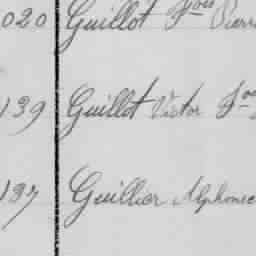 020 Guillot Fois Pierre
139 Guillot Victor Foi
137 Guillier Alphonse